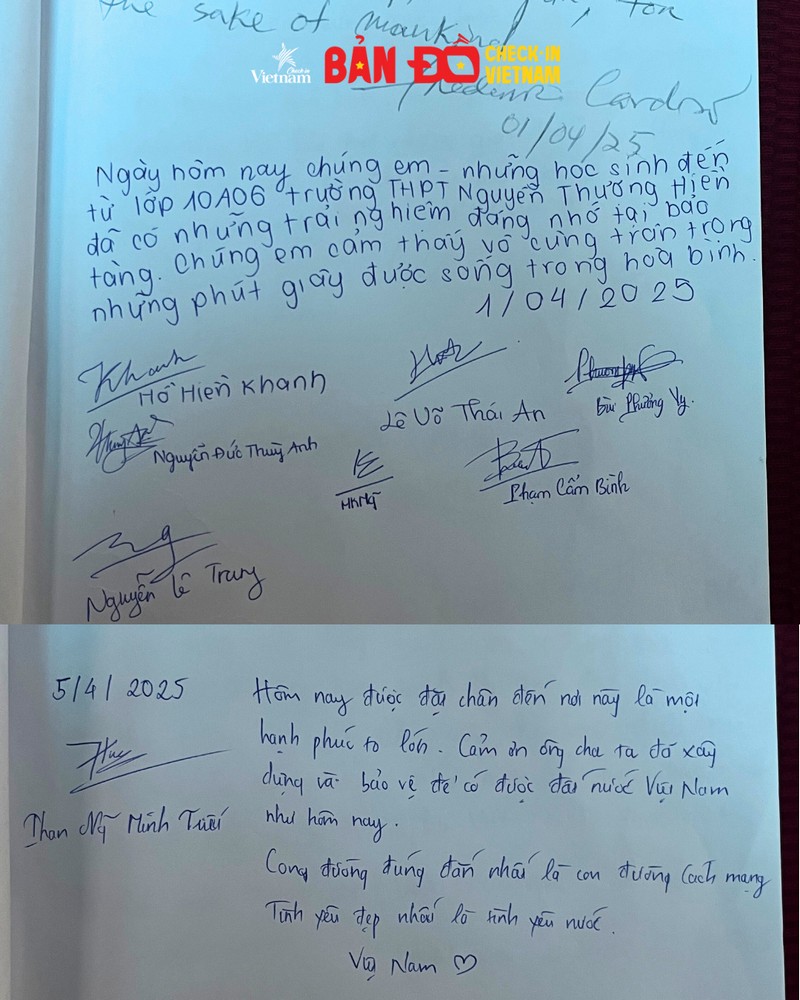 the sake of mankind
Check-in
Vietnam
BẢN ĐỒ
CHECK-IN
VIETNAM
Cardoso
01/04/25
Ngày hôm nay chúng em - những học sinh đến
từ lớp 10A06 trường THPT Nguyễn Thượng Hiền
đã có những trải nghiệm đáng nhớ tại bảo
tàng. Chúng em cảm thấy vô cùng trân trọng
những phút giây được sống trong hoà bình.
1/04/2025
Khanh
Hồ Hiền Khanh
Lê Võ Thái An
Bùi Phương Vy.
Nguyễn Đức Thuỳ Anh
Phạm Cẩm Bình
Nguyễn Lê Trang
5/4/2025
Hôm nay được đặt chân đến nơi này là một
hạnh phúc to lớn. Cảm ơn ông cha ta đã xây
dựng và bảo vệ để có được đất nước Việt Nam
như hôm nay.
Phan Mỹ Minh
Con đường đúng đắn nhất là con đường Cách mạng
Tình yêu đẹp nhất là tình yêu nước.
Việt Nam ♡